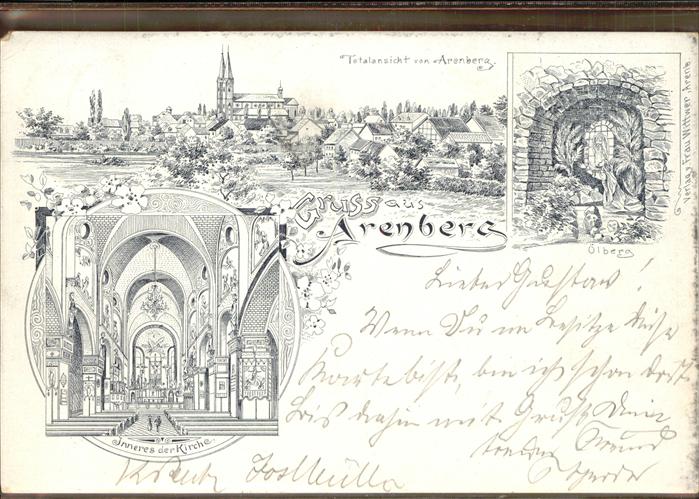 Totalansicht von Arenberg.
Gruss aus
Arenberg
Ölberg
Verlag v. Frau Wwe
Inneres der Kirche.
Lieber Gustav!
Wenn Du im Besitze dieser
Karte bist, bin ich schon dort
Bis dahin mit Gruß Dein
Freund